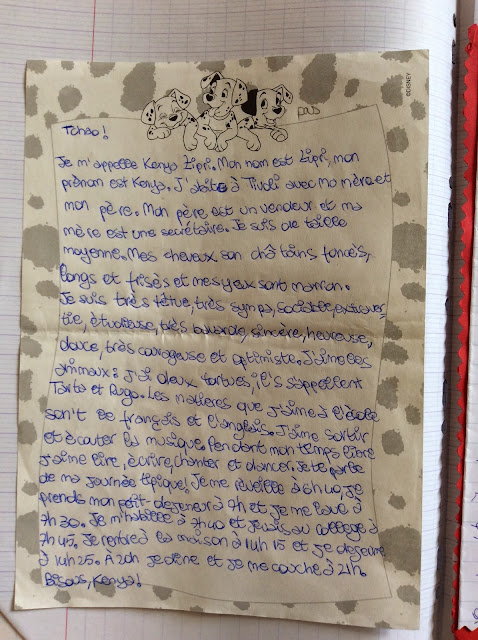 ©DISNEY
Tchao!
Je m'appelle Kenya Lipri. Mon nom est Lipri, mon
prènom est Kenya. J'abite à Tivoli avec ma mère et
mon père. Mon père est un vendeur et ma
mère est une secrétaire. Je suis de taille
moyenne. Mes cheveux son châtains foncès,
longs et frisès et mes yeux sont marron.
Je suis très tétue, très sympa, sociable, extraver-
tie, ètudieuse, très bavarde, sincère, heureuse,
douce, très courageuse et optimiste. J'aime les
animaux: j'ai deux tortues; il's s'appellent
Tarta et Ruga. Les matières que j'aime à l'école
son't le français et l'anglais. J'aime sortir
et ècouter la musique. Pendant mon temps libre
j'aime lire, ècrire, chanter et dancer. Je te parle
de ma journée tipique! Je me rèveille à 6h40, je
prends mon petit-dejeuner à 7h et je me lave à
7h30. Je m'habille à 7h40 et je vais au collège à
7h45. Je rentre à la maison à 14h15 et je dejeune
à 14h25. À 20h je dîne et je me couche à 21h.
Bisous, Kenya!